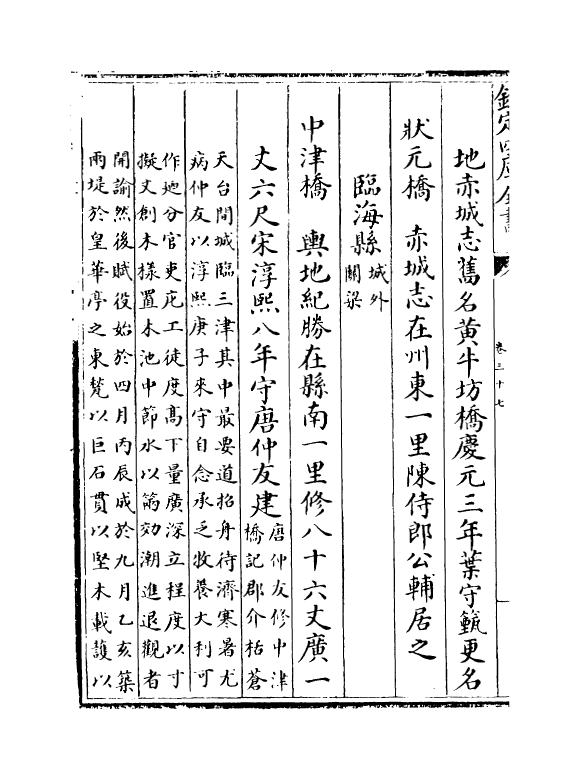 欽定四庫全書
卷三十七
地赤城志舊名黃牛坊橋慶元三年葉守籈更名
狀元橋 赤城志在州東一里陳侍郎公輔居之
臨海縣
城外
關梁
中津橋 輿地紀勝在縣南一里修八十六丈廣一
丈六尺宋淳熙八年守唐仲友建
唐仲友修中津
橋記郡介栝蒼
天台間城臨三津其中最要道招舟待濟寒暑尤
病仲友以淳熙庚子來守自念承乏牧養大利可
作廼分官吏庀工徒度高下量廣深立程度以寸
擬丈創木樣置木池中節水以筩効潮進退觀者
開諭然後賦役始於四月丙辰成於九月乙亥築
兩堤於皇華亭之東甃以巨石貫以堅木載護以